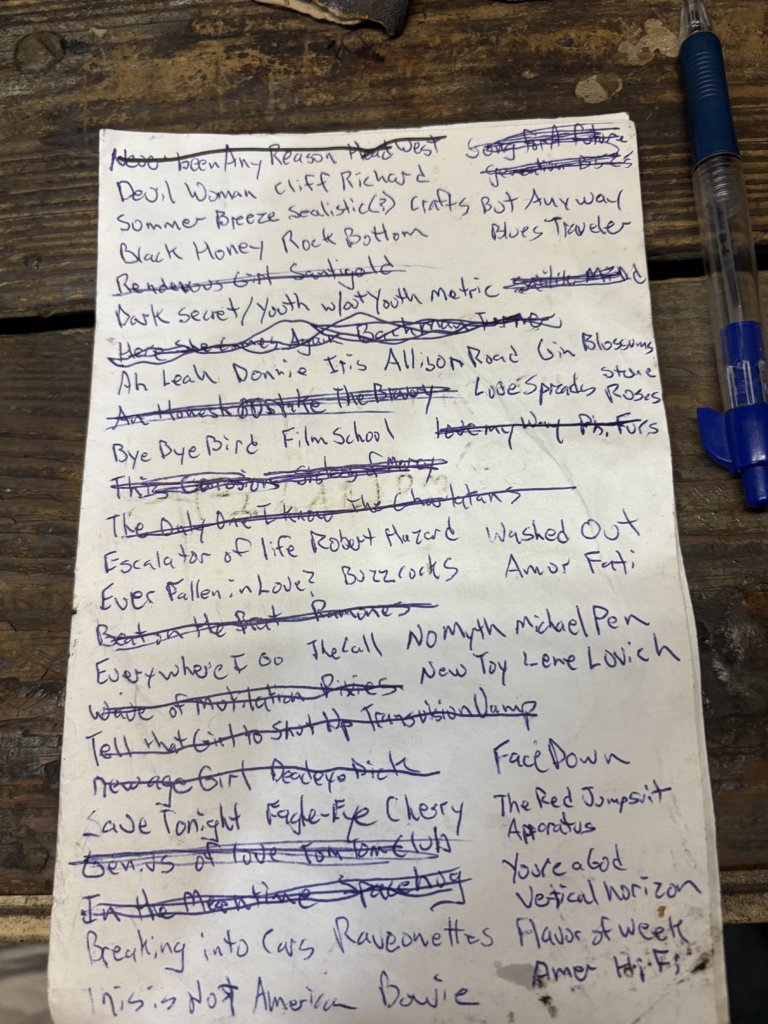 Never been Any Reason Head West
Song for A Future
Generation B52s
Devil Woman Cliff Richard
Summer Breeze Sealistic(?) Crafts
But Anyway
Blues Traveler
Black Honey Rock Bottom
Rendevous Girl Santigold
Dark Secret/Youth w/out Youth Metric
Here She Comes Again Bachman Turner
Ah Leah Donnie Iris
Allison Road Gin Blossoms
An Honest Mistake The Bravery
Love Spreads Stone
Roses
Bye Bye Bird Film School
Love my Way Ps. Furs
This Corrosion Sisters of mercy
The Only One I Know The Charlatans
Escalator of life Robert Hazard
Washed Out
Amor Fati
Ever Fallen in Love? Buzzcocks
Beat on the Brat Ramones
Everywhere I Go The Call
No Myth Michael Pen
New Toy Lene Lovich
Wave of Mutilation Pixies
Tell that Girl to Shut Up Transvision Vamp
new age Girl Deadeye Dick
Face Down
The Red Jumpsuit
Apparatus
Save Tonight Eagle-Eye Cherry
Genius of love Tom Tom Club
You're a God
Vertical horizon
In the Meantime Spacehog
Breaking into Cars Raveonettes
Flavor of week
Amer Hi-Fi
This is Not American Bowie